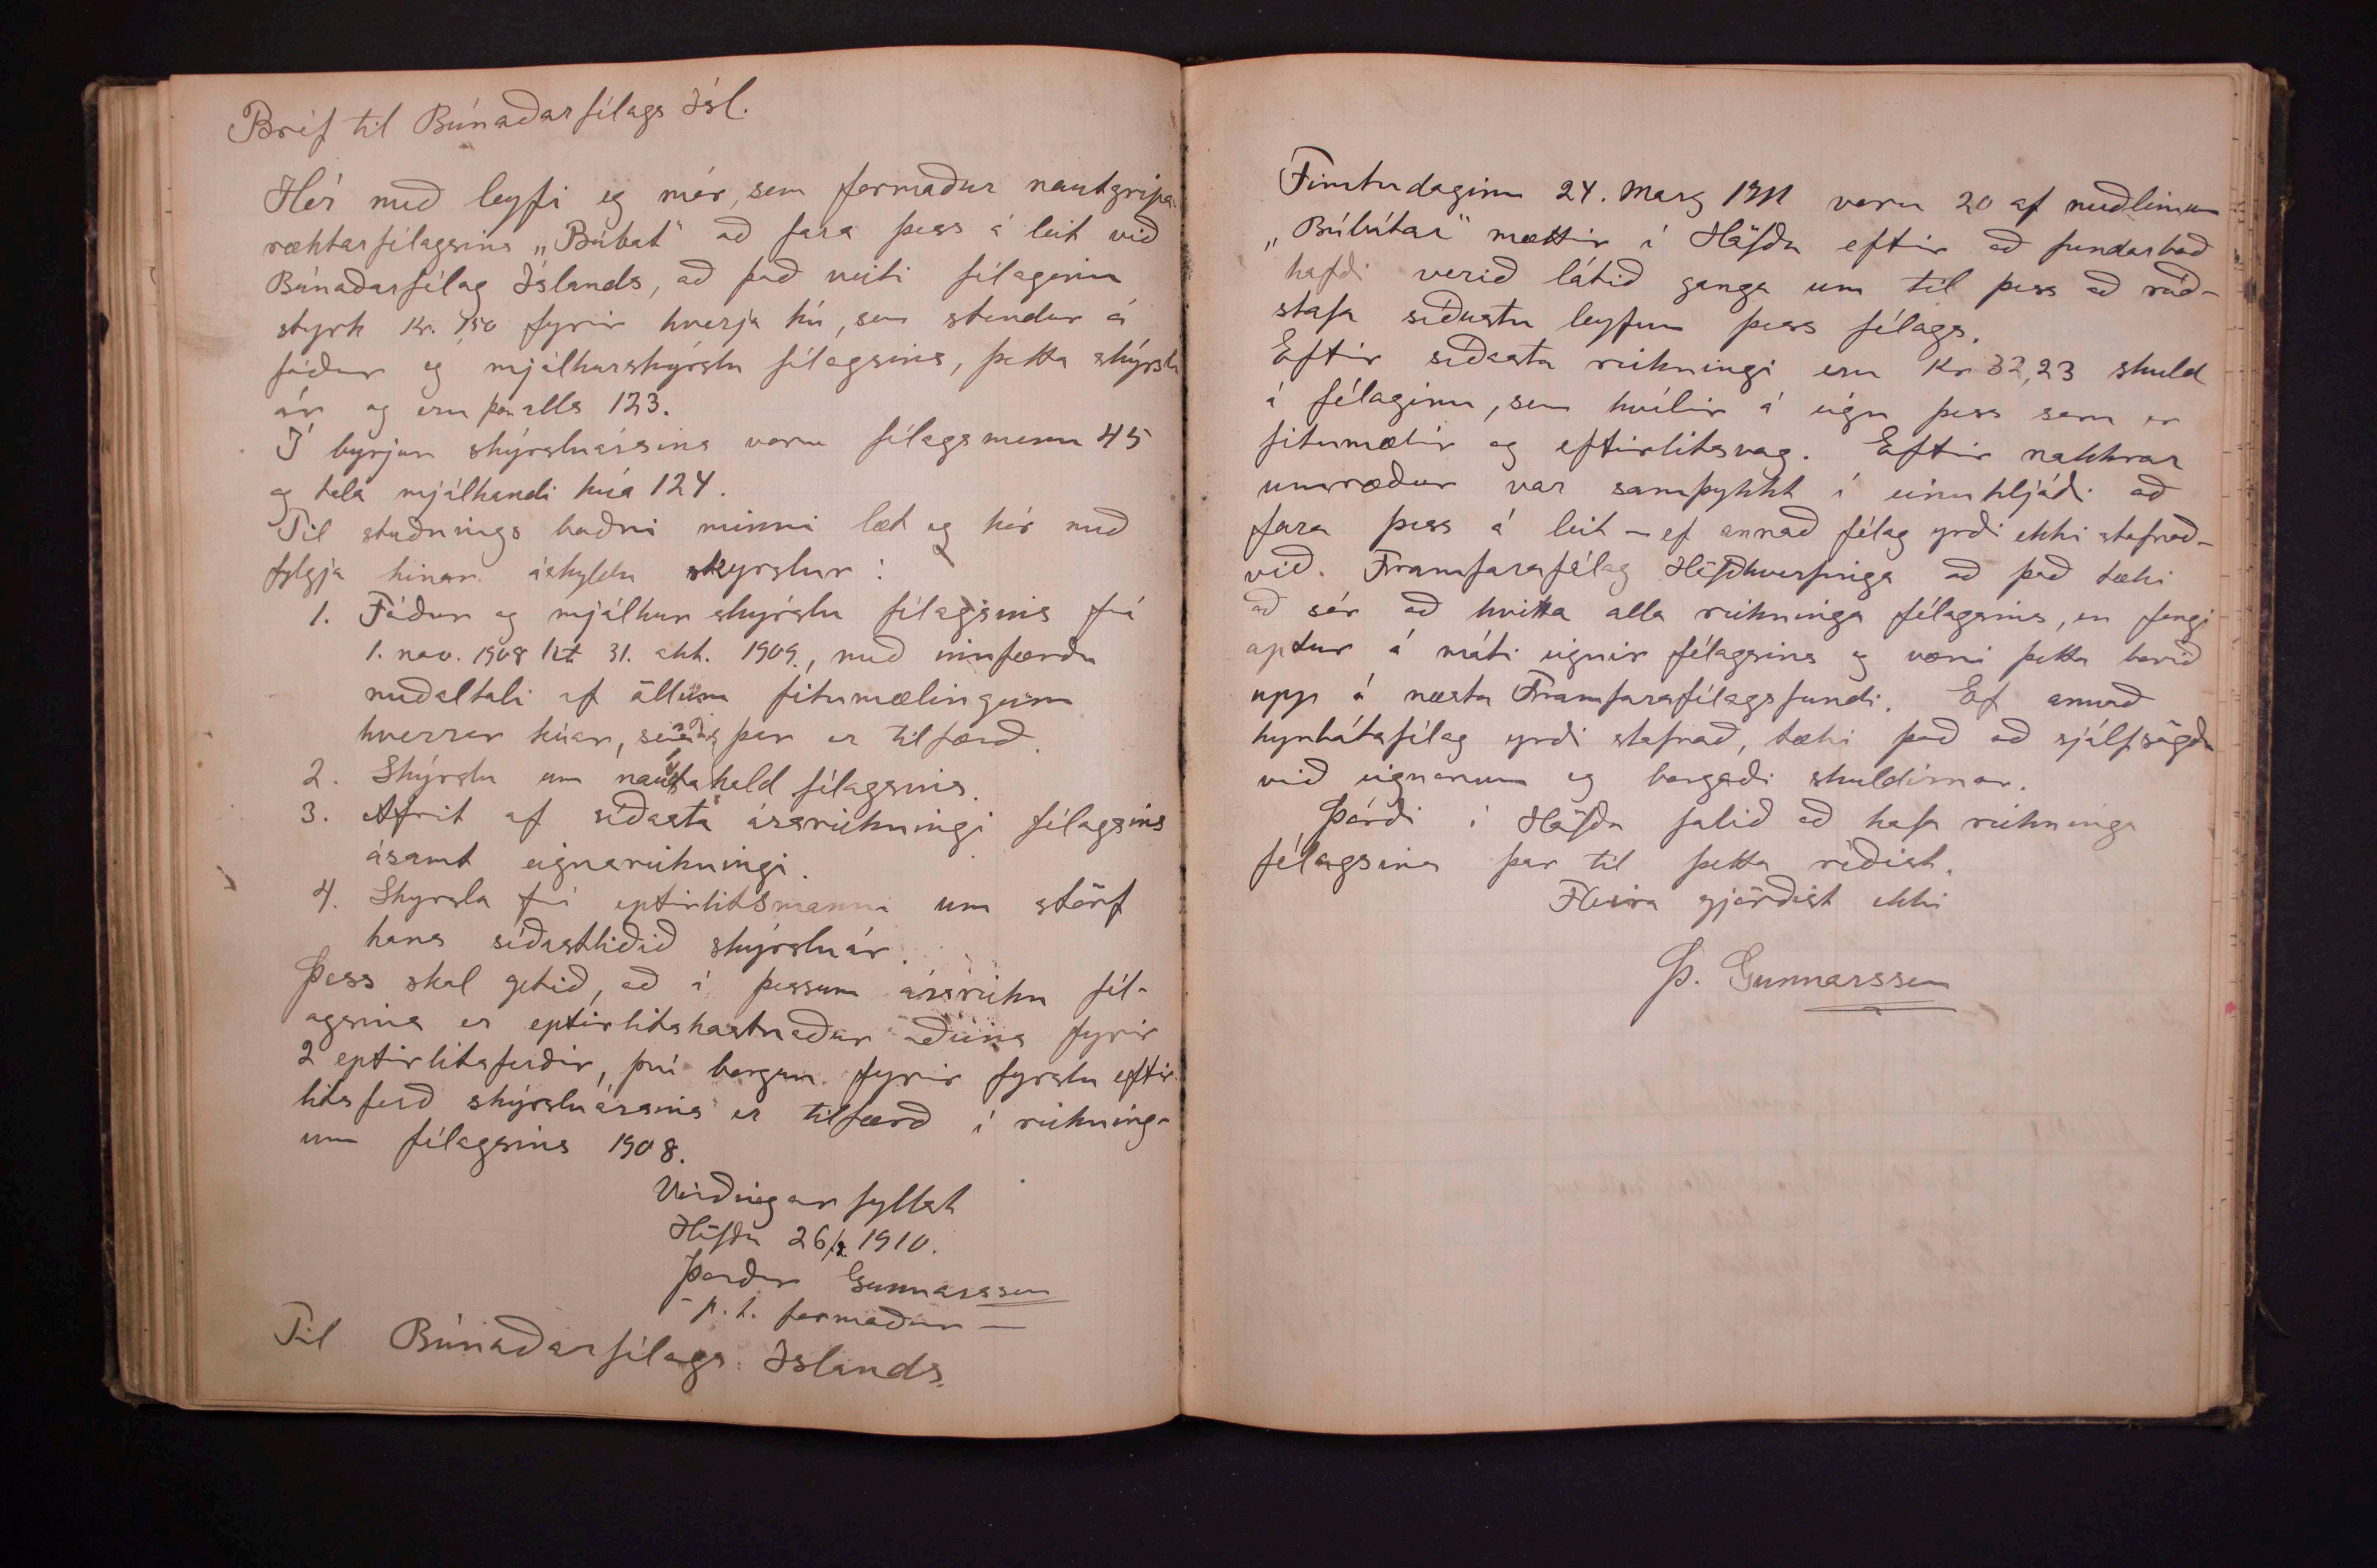 Bréf til Búnaðarfélags Ísl.
Hér með leyfi eg mér, sem formaður nautgripa-
ræktarfélagsins „Búbót" að fara þess á leit við
Búnaðarfélag Íslands, að það veiti félaginu
styrk Kr. 1,50 fyrir hverja kú, sem stendur á
fóður og mjólkurskýrslu félagsins, þetta skýrslu
ár og eru þær alls 123.
Í byrjun skýrsluársins voru félagsmenn 45
og tala mjólkandi kúa 124.
Til stuðnings beðni minni læt eg hér með
fylgja hinar áskyldu skyrslur:
1. Fóður og mjólkur skýrslu félagsins frá
1. nov. 1908 til 31. okt. 1909, með innfærðu
meðaltali af öllum fitumælingum
hverrar kúar, sem þar er tilfærð.
2. Skýrslu um nautahald félagsins.
3. Afrit af síðasta ársreikningi félagsins
ásamt eignareikningi.
4. Skyrsla frá eptirlitsmanni um störf
hans síðastliðið skýrsluár.
Þess skal getið, að í þessum ársreikn fél-
agsins er eptirlitskostnaður aðeins fyrir
2 eptirlitsferðir, því borgun fyrir fyrstu eftir-
litsferð skýrsluársins er tilfærð í reikning-
um félagsins 1908.
Virðingarfyllst
Höfða 26/2 1910.
Þórður Gunnarsson
- p. t. formaður -
Til Búnaðarfélags Íslands.
Fimtudaginn 24. Marz 1911 voru 20 af meðlimum
„Búbótar" mættir í Höfða eftir að fundarboð
hafði verið látið ganga um til þess að ráð-
stafa síðustu leyfum þess félags.
Eftir síðasta reikningi eru Kr 32,23 skuld
á félaginu, sem hvílir á eign þess sem er
fitumælir og eftirlitsvog. Eftir nokkrar
umræður var samþykkt í einuhljóði að
fara þess á leit - ef annað félag yrði ekki stofnað -
við. Framfarafélag Höfðhverfinga að það tæki
að sér að kvitta alla reikninga félagsins, en fengi
aptur á móti eignir félagsins og væri þetta borið
upp á næsta Framfarafélagsfundi. Ef annað
kynbótafélag yrði stofnað, tæki það að sjálfsögðu
við eignunum og borgaði skuldirnar.
Þórði í Höfða falið að hafa reikninga
félagsins þar til þetta ræðist.
Fleira gjörðist ekki
Þ. Gunnarsson